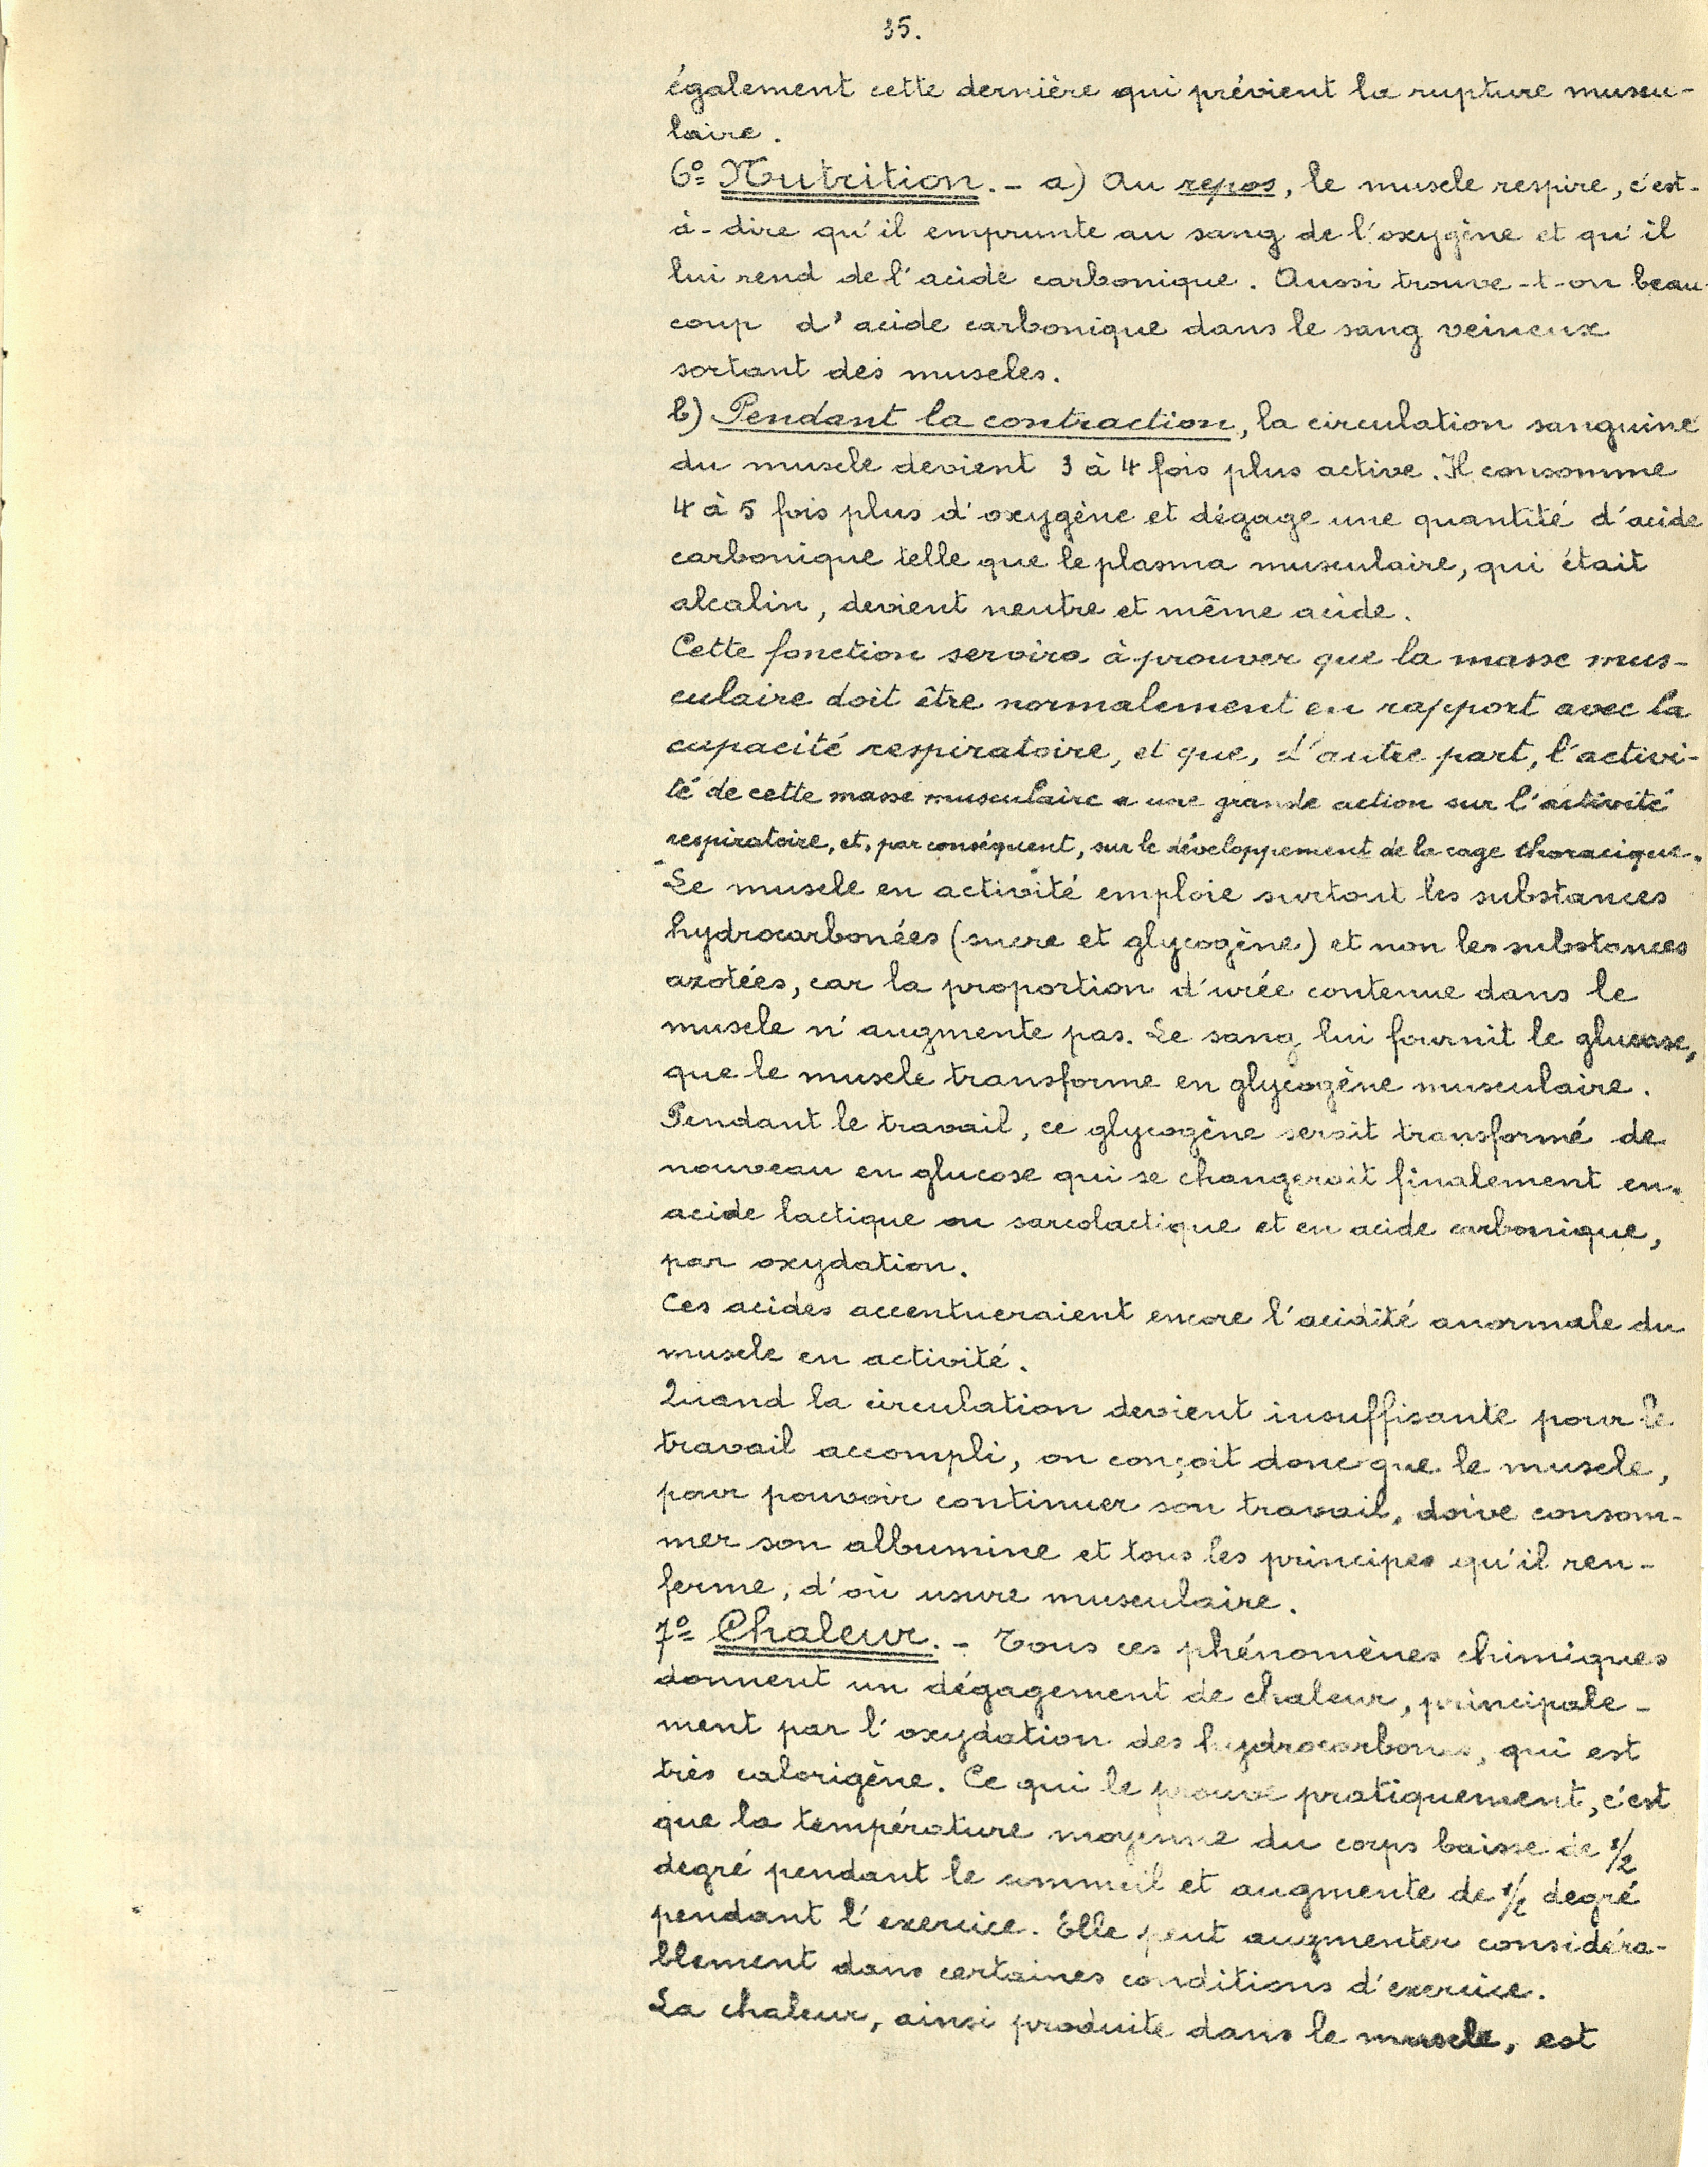 35.
également cette dernière qui prévient la rupture muscu-
laire.
6º Nutrition. - a) Au repos, le muscle respire, c'est-
à-dire qu'il emprunte au sang de l'oxygène et qu'il
lui rend de l'acide carbonique. Aussi trouve-t-on beau-
coup d'acide carbonique dans le sang veineux
sortant des muscles.
b) Pendant la contraction, la circulation sanguine
du muscle devient 3 à 4 fois plus active. Il consomme
4 à 5 fois plus d'oxygène et dégage une quantité d'acide
carbonique telle que le plasma musculaire, qui était
alcalin, devient neutre et même acide.
Cette fonction servira à prouver que la masse mus-
culaire doit être normalement en rapport avec la
capacité respiratoire, et que, d'autre part, l'activi-
té de cette masse musculaire a une grande action sur l'activité
respiratoire, et, par conséquent, sur le développement de la cage thoracique.
Le muscle en activité emploie surtout les substances
hydrocarbonées (sucre et glycogène) et non les substances
azotées, car la proportion d'urée contenue dans le
muscle n'augmente pas. Le sang lui fournit le glucose,
que le muscle transforme en glycogène musculaire.
Pendant le travail, ce glycogène serait transformé de
nouveau en glucose qui se changerait finalement en
acide lactique ou sarcolactique et en acide carbonique,
par oxydation.
Ces acides accentueraient encore l'acidité anormale du
muscle en activité.
Quand la circulation devient insuffisante pour le
travail accompli, on conçoit donc que le muscle,
pour pouvoir continuer son travail, doive consom-
mer son albumine et tous les principes qu'il ren-
ferme, d'où usure musculaire.
7º Chaleur. - Tous ces phénomènes chimiques
donnent un dégagement de chaleur, principale-
ment par l'oxydation des hydrocarbones, qui est
très calorigène. Ce qui le prouve pratiquement, c'est
que la température moyenne du corps baisse de 1/2
degré pendant le sommeil et augmente de 1/2 degré
pendant l'exercice. Elle peut augmenter considéra-
blement dans certaines conditions d'exercice.
La chaleur, ainsi produite dans le muscle, est